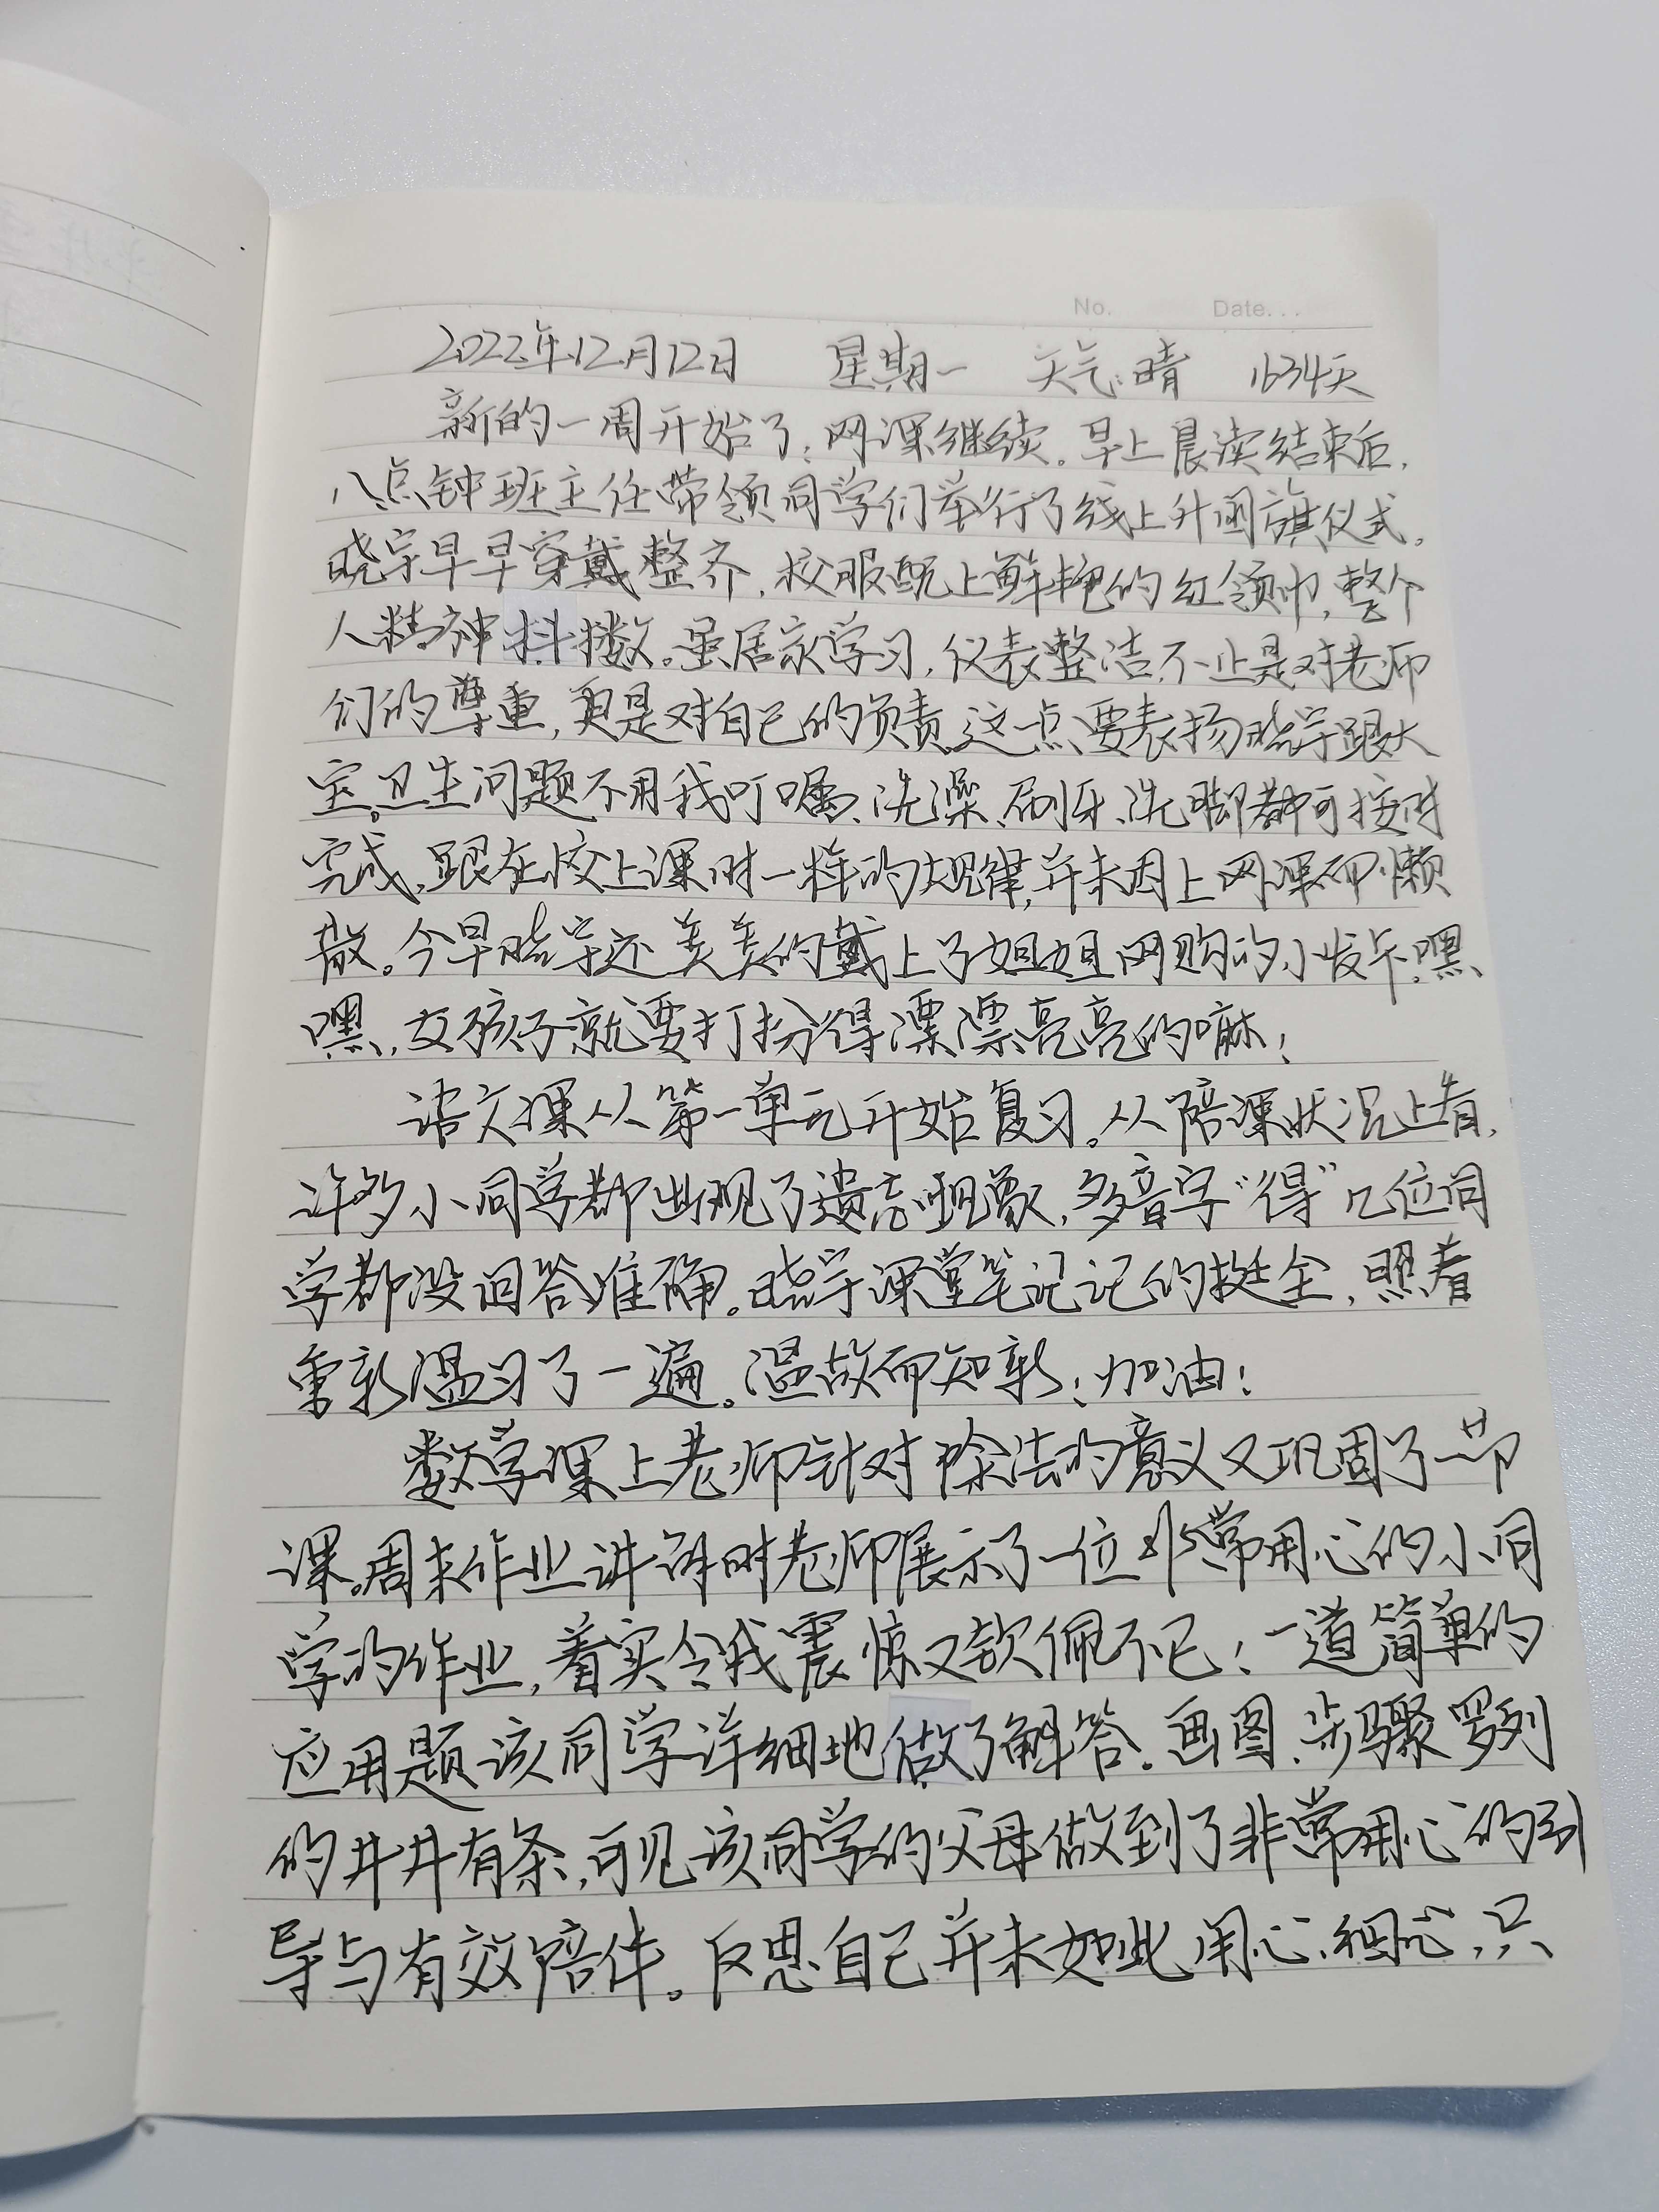 No.	Date...
2022年12月12日 星期一 天气:晴 1634天
新的一周开始了,网课继续。早上晨读结束后,
八点钟班主任带领同学们举行了线上升国旗仪式。
晓宇早早穿戴整齐,校服配上鲜艳的红领巾,整个
人精神抖擞。虽居家学习,仪表整洁不止是对老师
们的尊重,更是对自己的负责。这一点要表扬晓宇跟大
宝。卫生问题不用我叮嘱、洗澡、刷牙、洗脚都可按时
完成,跟在校上课时一样的规律,并未因上网课而懒
散。今早晓宇还美美的戴上了姐姐网购的小发卡,嘿
嘿,女孩子就要打扮得漂漂亮亮的嘛!
语文课从第一单元开始复习。从陪课状况上看,
许多小同学都出现了遗忘现象,多音字“得”几位同
学都没回答准确。晓宇课堂笔记记的挺全,照着
重新温习了一遍。温故而知新!加油!
数学课上老师针对除法的意义又巩固了一节
课。周末作业讲评时老师展示了一位非常用心的小同
学的作业,着实令我震惊又钦佩不已!一道简单的
应用题该同学详细地做了解答。画图、步骤罗列
的井井有条,可见该同学的父母做到了非常用心的引
导与有效陪伴。反思自己并未如此用心、细心,只